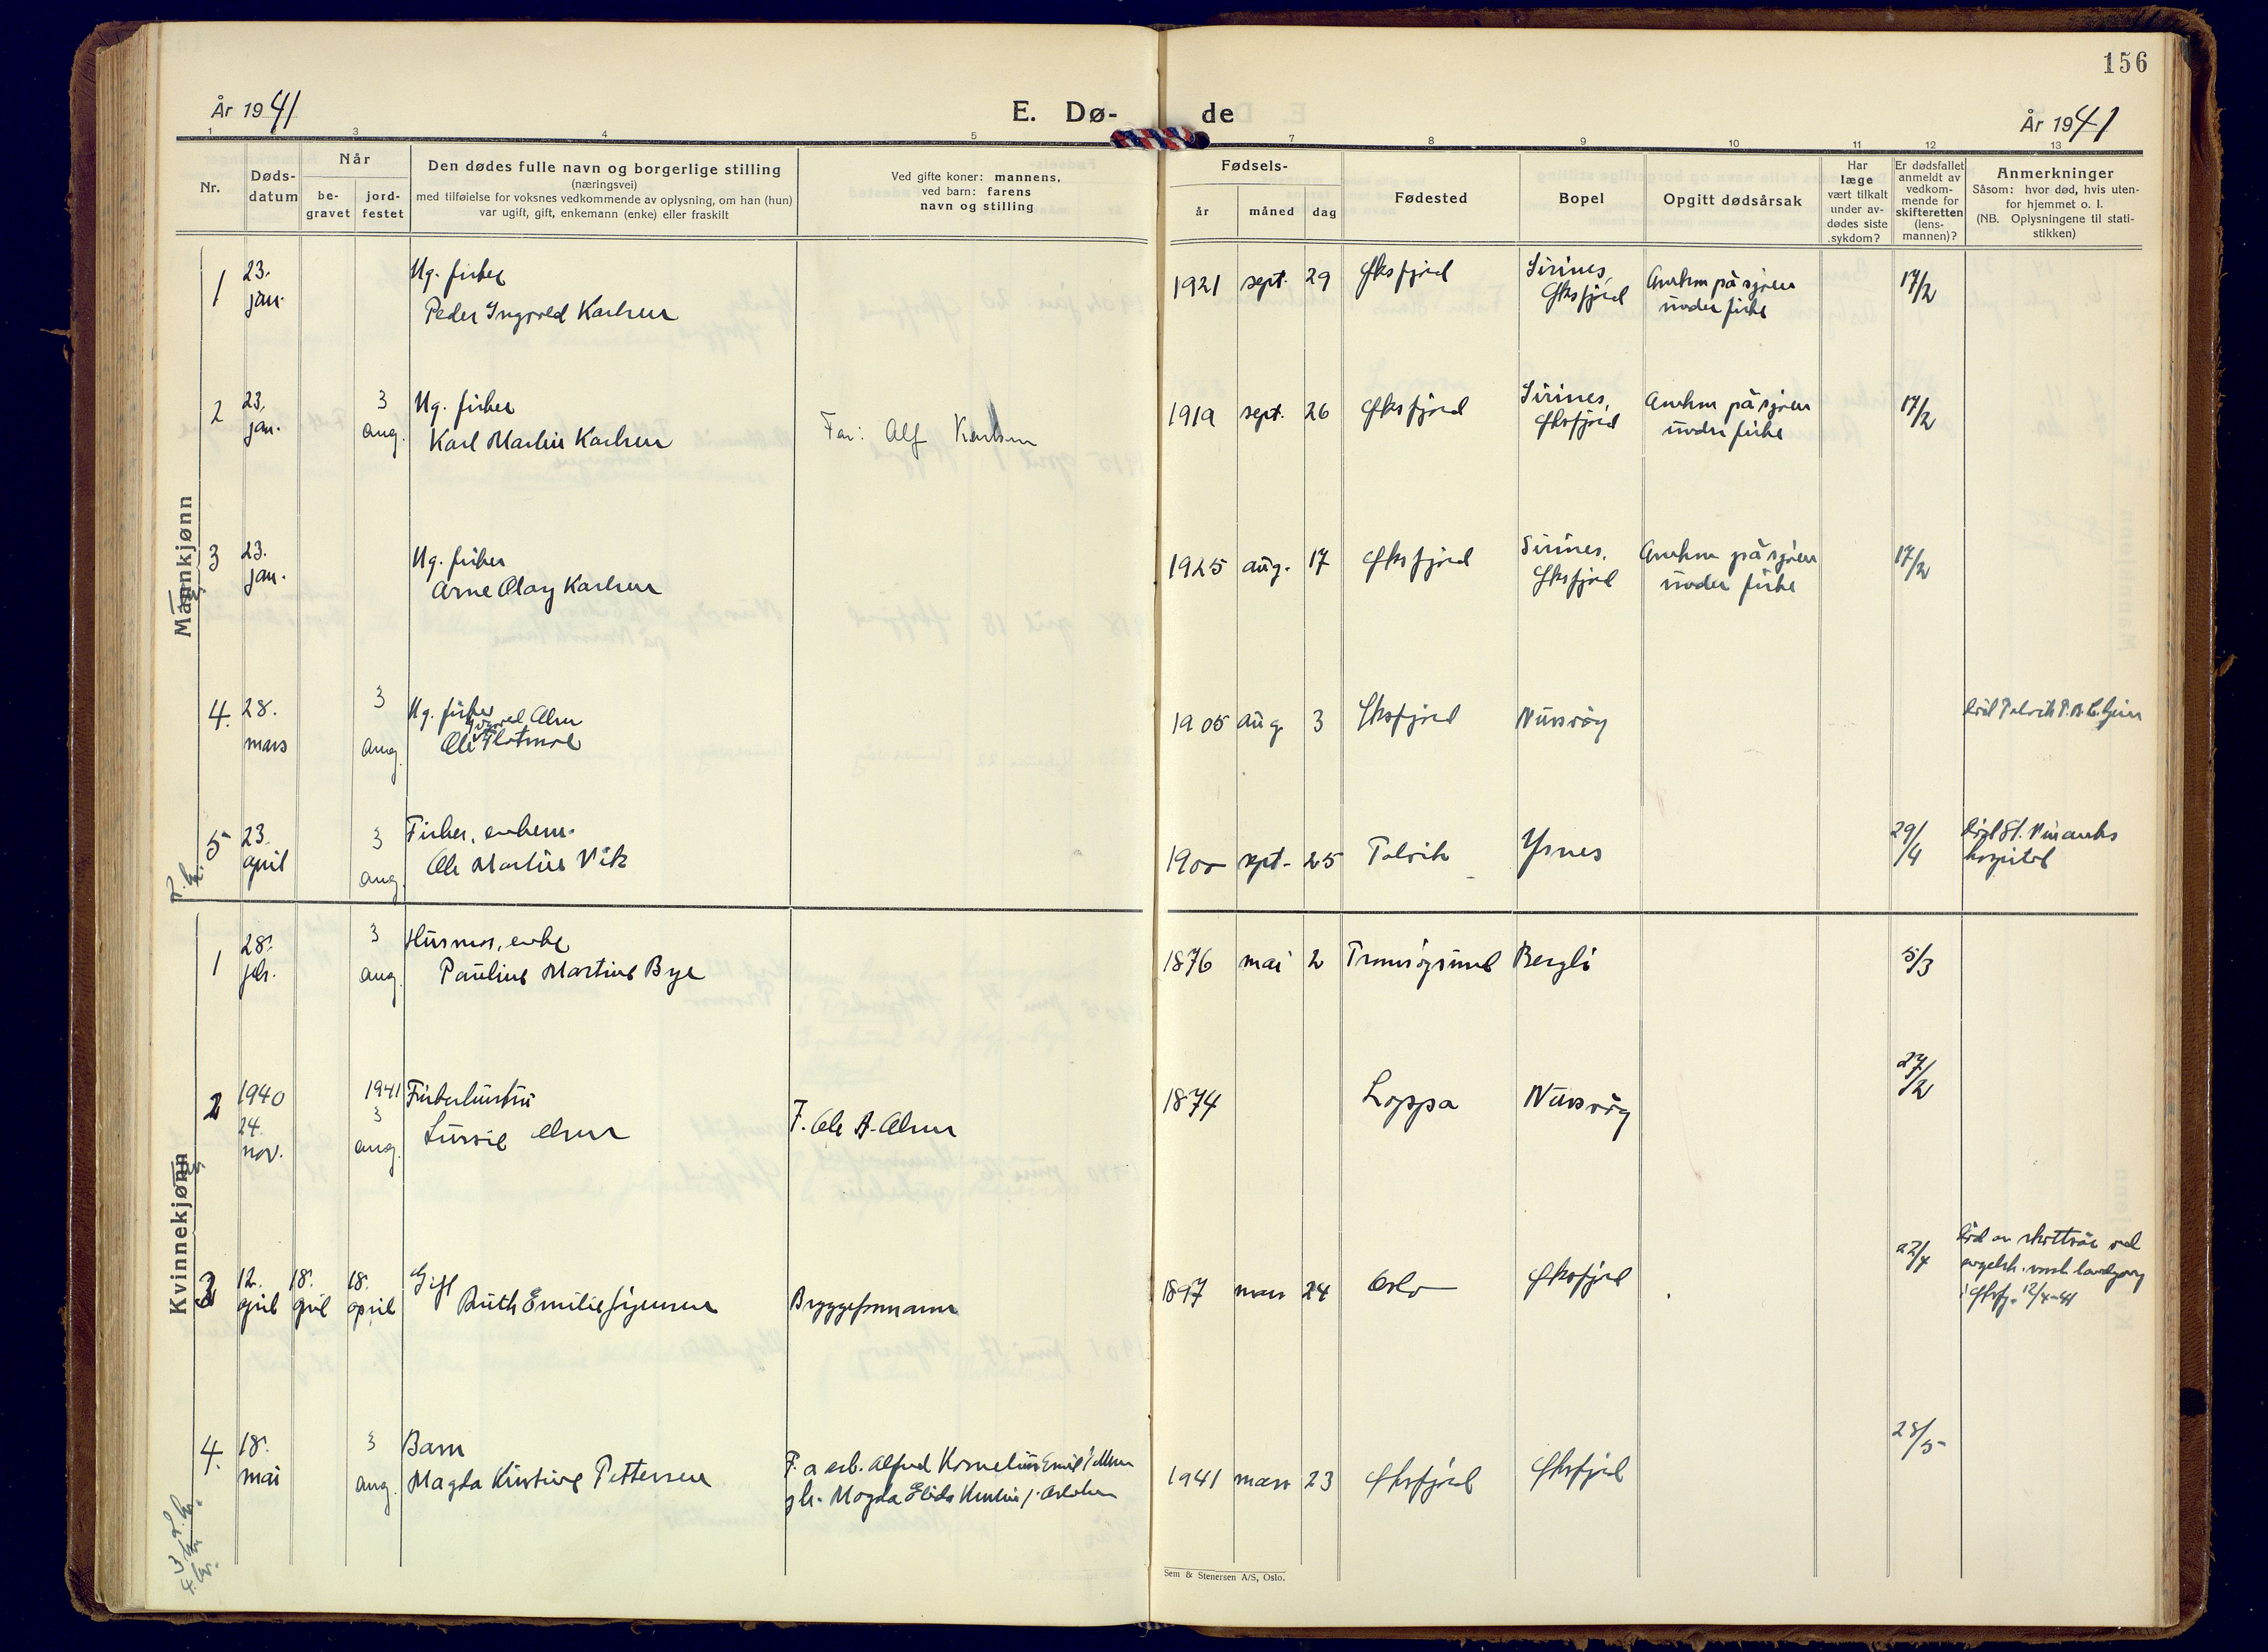 156
År 1941
E. Dø-
de
År 1941
1 3 4 5 7 8 9 10 11 12 13
Nr.
Døds-
datum
Når
be-
gravet
jord-
festet
Den dødes fulle navn og borgerlige stilling
(næringsvei)
med tilføielse for voksnes vedkommende av oplysning, om han (hun)
var ugift, gift, enkemann (enke) eller fraskilt
Ved gifte koner: mannens,
ved barn: farens
navn og stilling
Fødsels-
år måned dag
Fødested
Bopel
Opgitt dødsårsak
Har
læge
vært tilkalt
under av-
dødes siste
sykdom?
Er dødsfallet
anmeldt av
vedkom-
mende for
skifteretten
(lens-
mannen)?
Anmerkninger
Såsom: hvor død, hvis uten-
for hjemmet o. l.
(NB. Oplysningene til stati-
stikken)
Mannkjønn
1 23. jan. Ug. fisker
Peder Ingvold Karlsen
1921 sept. 29 Øksfjord
Øksfjord
Omkom på sjøen
under fiske
17/2
2 23. jan. 3 aug. Ug. fisker
Karl Martin Karlsen
Far: Alf Karlsen
1919 sept. 26 Øksfjord
Øksfjord
Omkom på sjøen
under fiske
17/2
3 23. jan. Ug. fisker
Arne Olav Karlsen
1925 aug. 17 Øksfjord
Øksfjord
Omkom på sjøen
under fiske
17/2
4. 28. mars 3 aug. Ug. fisker
Ole
1905 aug. 3 Øksfjord Nuvsvåg
død Talvik
5 23. april 3 aug. Fisker, enkem.
Ole Martin Vik
1900 sept. 25 Talvik Ysnes
29/4
død St. Vincents
hospital
Kvinnekjønn
1 28. febr. 3 aug. Husmor, enke
Pauline Martine Bye
1876 mai 2 Tromsøysund Bergli
5/3
2 1940 24. nov. 1941 3 aug. Fiskerhustru
Olsen
F. Ole A. Olsen
1874 Loppa Nuvsvåg
27/2
3 12. april 18. april 18. april Gift
Ruth Emilie
Bryggeformann
1897 mars 24 Oslo Øksfjord
22/4
død av skottsår ved
engelsk-norsk landgang
i Øksfj. 12/4-41
4. 18. mai 3 aug. Barn
Magda Kristine Pettersen
F. a arb. Alfred Kornelius Emil
Magda
1941 mars 23 Øksfjord Øksfjord
28/5
Sem & Stenersen A/S, Oslo.